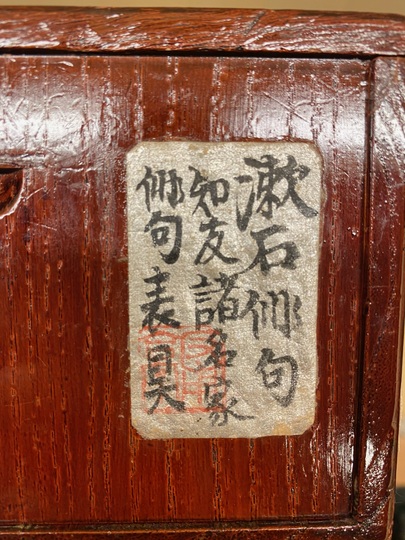 漱石俳句
知友諸名家
俳句表